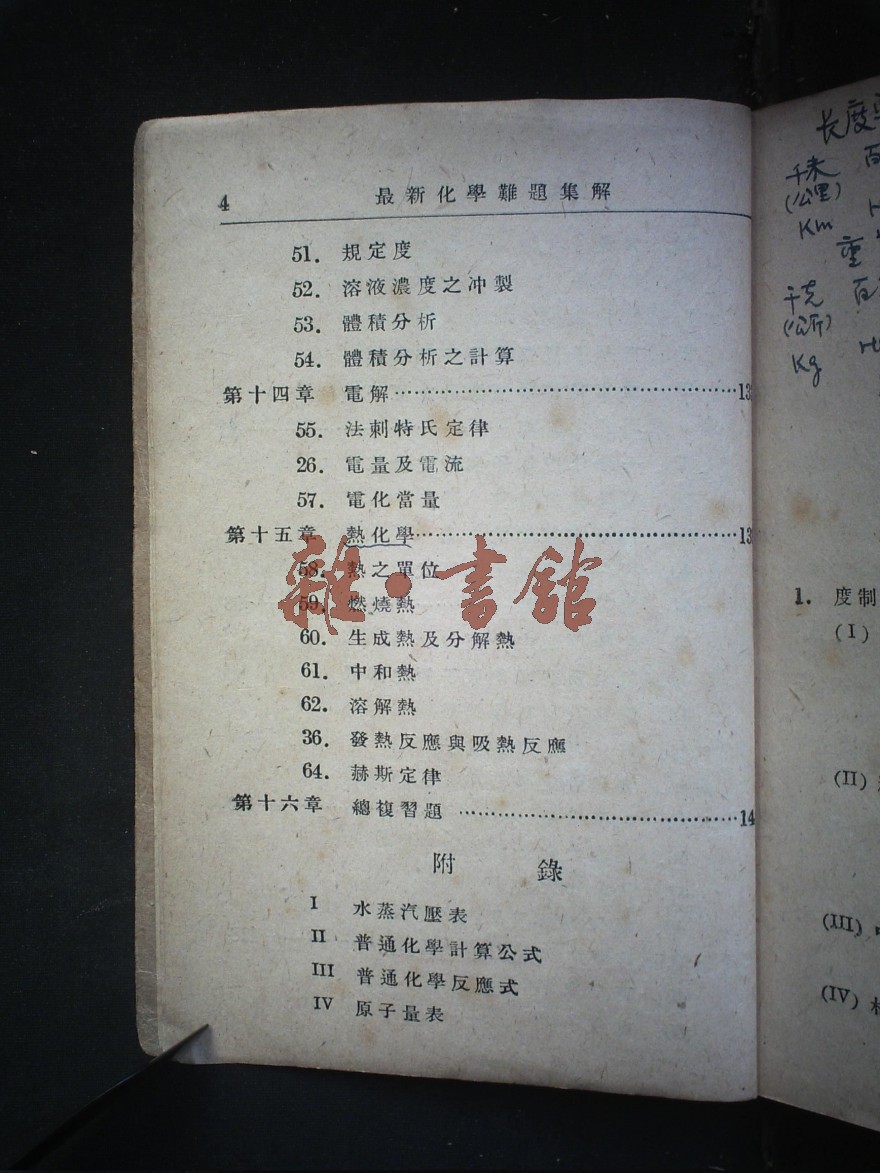 4 最新化學難題集解
51. 規定度
52. 溶液濃度之冲製
53. 體積分析
54. 體積分析之計算
第十四章 電解……………………………………13
55. 法刺特氏定律
26. 電量及電流
57. 電化當量
第十五章 熱化學……………………………………13
58. 熱之單位
59. 燃燒熱
60. 生成熱及分解熱
61. 中和熱
62. 溶解熱
36. 發熱反應與吸熱反應
64. 赫斯定律
第十六章 總複習題……………………………………14
附 錄
I 水蒸汽壓表
II 普通化學計算公式
III 普通化學反應式
IV 原子量表
雜·書館
长度
千米
(公里)
Km
重
千克
(公斤)
Kg
1. 度制
(I)
(II)
(III)
(IV)